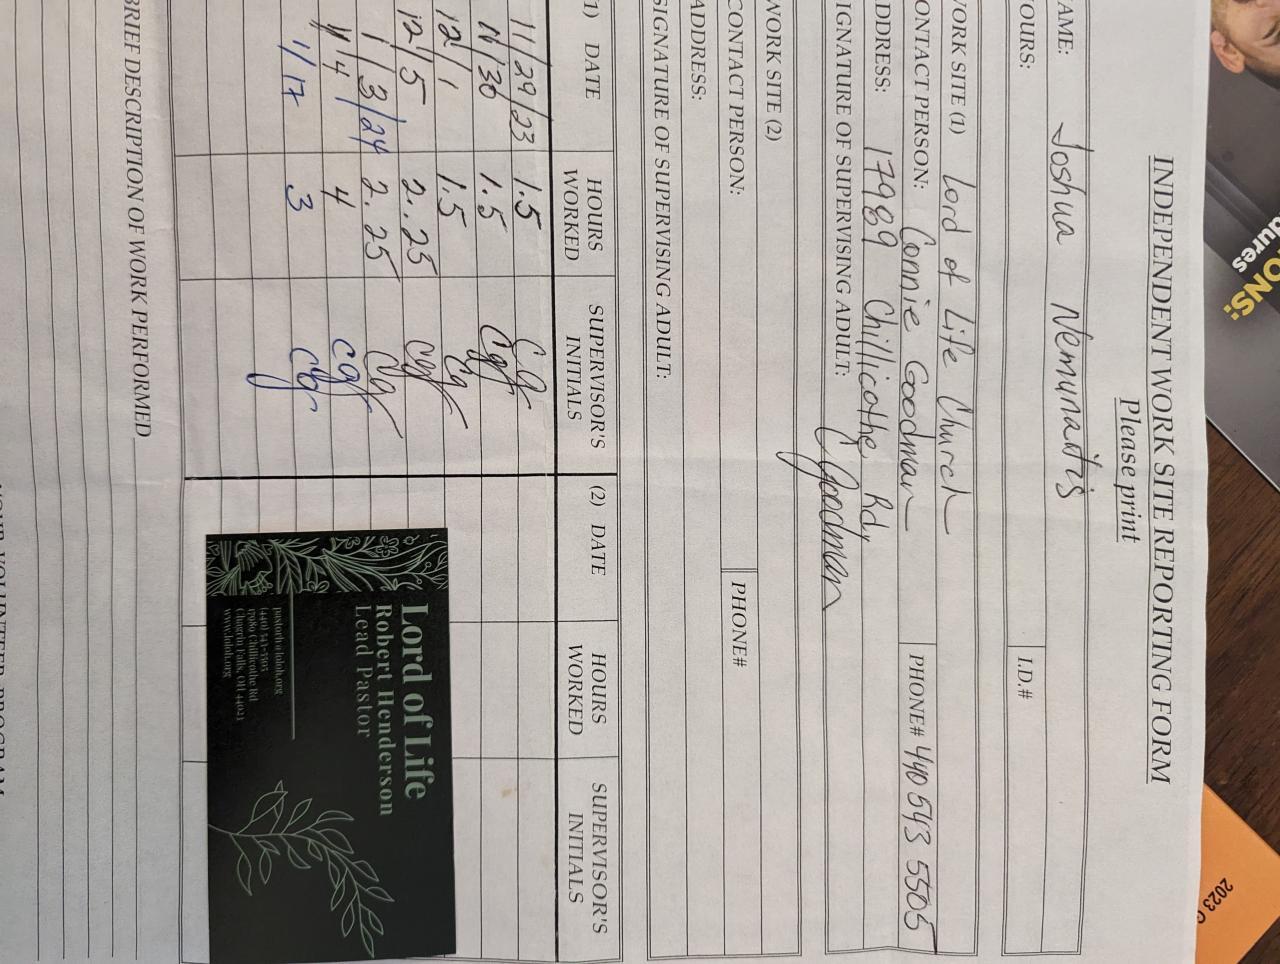 INDEPENDENT WORK SITE REPORTING FORM
Please print
AME: Joshua Nemunaitis
OURS: I.D.#
WORK SITE (1) Lord of Life Church
ONTACT PERSON: Connie Goodman PHONE# 440 543 5505
DDRESS: 17989 Chillicothe Rd
IGNATURE OF SUPERVISING ADULT: C Goodman
WORK SITE (2)
CONTACT PERSON: PHONE#
ADDRESS:
SIGNATURE OF SUPERVISING ADULT:
1) DATE HOURS WORKED SUPERVISOR'S INITIALS (2) DATE HOURS WORKED SUPERVISOR'S INITIALS
11/29/23 1.5 Cg
11/30 1.5 Cg
12/1 1.5 Cg
12/5 2.25 Cg
1/3/24 2.25 Cg
1/4 4 Cg
1/17 3 Cg
Lord of Life
Robert Henderson
Lead Pastor
pastorh@lololc.org
17989 Chillicothe Rd
Chagrin Falls, OH 44023
BRIEF DESCRIPTION OF WORK PERFORMED
YOUR VOLUNTEER PROGRAM
ONS:
dures
2023 G